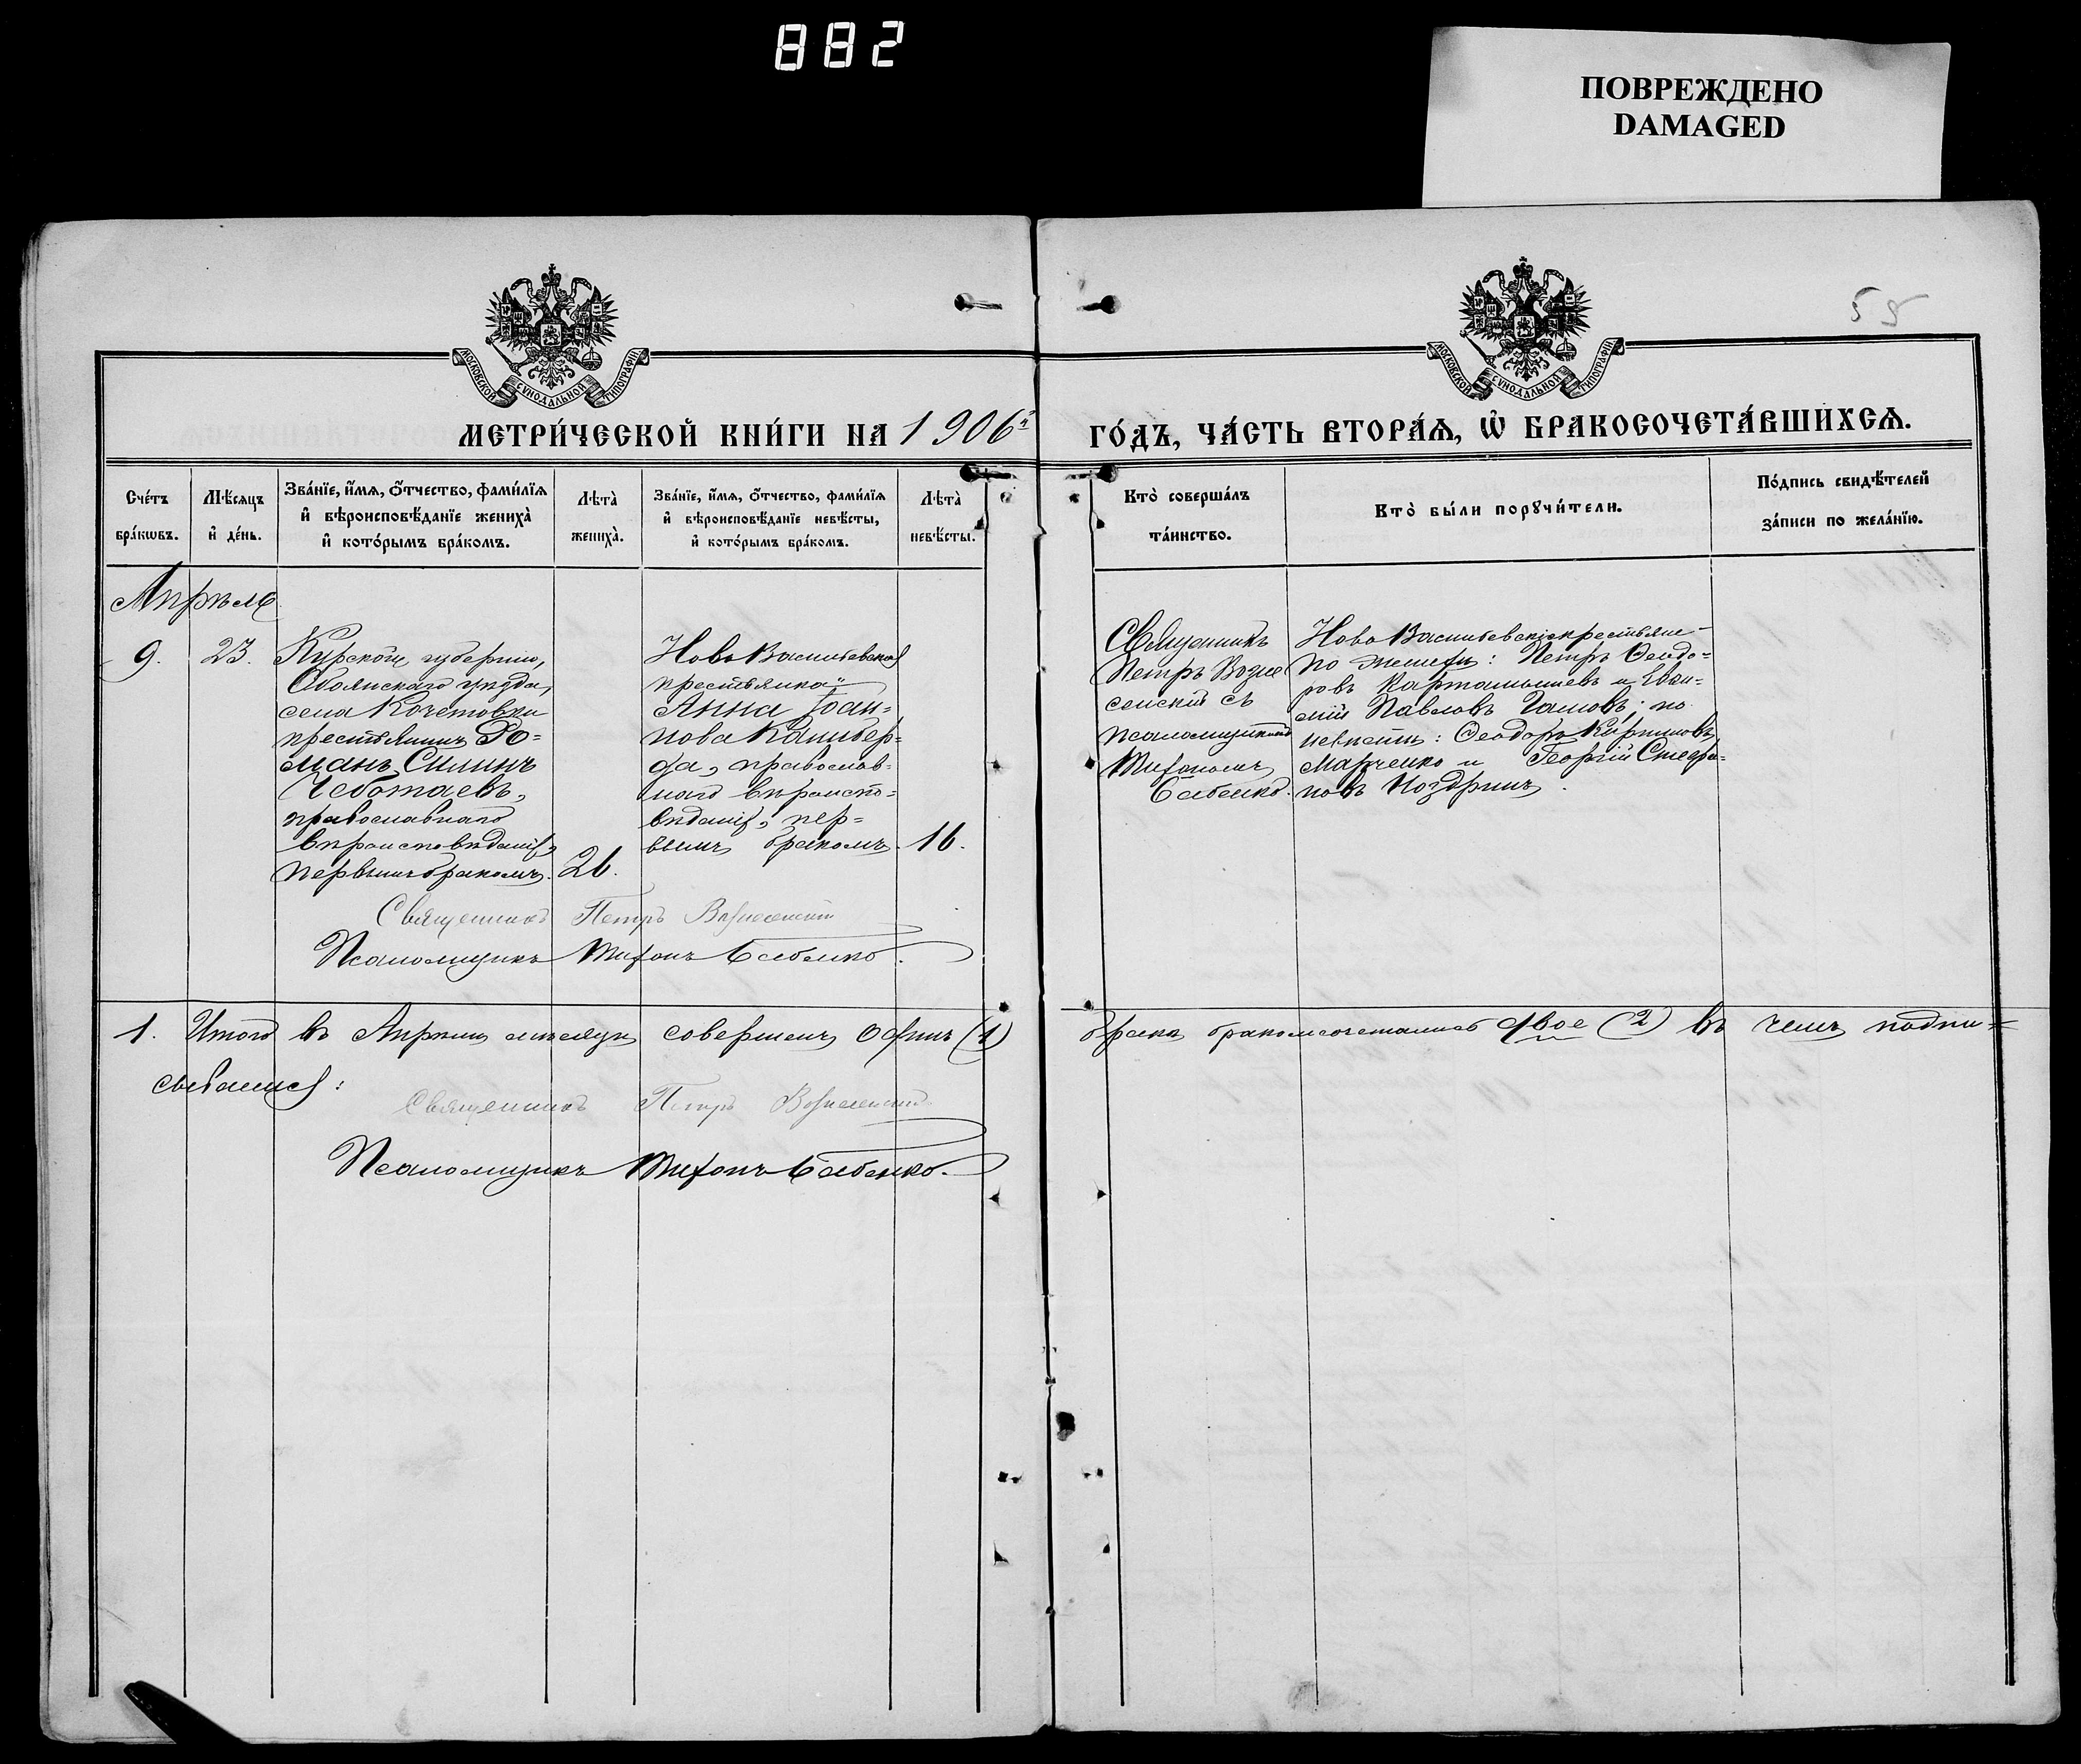 882
ПОВРЕЖДЕНО
DAMAGED
55
МОСКОВСКОЙ СѴНОДАЛЬНОЙ ТИПОГРАФІИ
МОСКОВСКОЙ СѴНОДАЛЬНОЙ ТИПОГРАФІИ
МЕТРИ́ЧЕСКОЙ КНИ́ГИ НА 1906й
ГО́ДЪ, ЧА́СТЬ ВТОРА́Ѧ, Ѽ БРАКОСОЧЕТА́ВШИХСѦ.
Сче́тъ
бра́кωвъ.
Мѣ́сяцъ
и҆ де́нь.
Зва́нїе, и҆́мѧ, ѻ҆́тчество, фами́лїѧ
и҆ вѣроисповѣ́данїе жениха̀
и҆ кото́рымъ бра́комъ.
Лѣ́та̀
жениха̀.
Зва́нїе, и҆́мѧ, ѻ҆́тчество, фами́лїѧ
и҆ вѣроисповѣ́данїе невѣ́сты,
и҆ кото́рымъ бра́комъ.
Лѣ́та̀
невѣ́сты.
Кто̀ соверша́лъ
та́инство.
Кто̀ бы́ли порꙋчи́тели.
По́дпись свидѣ́телей
за́писи по жела́нїю.
Апрѣль
9.
23.
Курской губерніи,
Обоянскаго уѣзда,
села Кочетовки
крестьянинъ Ро=
манъ Силинъ
Чеботаевъ,
православнаго
вѣроисповѣданія,
первымъ бракомъ.
26.
Ново Васильевская
крестьянка
Анна Іоан=
нова Калибер=
да, православ=
наго вѣроиспо=
вѣданія, пер=
вымъ бракомъ.
16.
Священникъ
Петръ Возне
сенскій съ
псаломщикомъ
Тихономъ
Бабенко.
Ново Васильевскіе крестьяне
по женихѣ: Петръ Ѳеодо=
ровъ Картамышевъ и Евѳи=
мій Павловъ; по
невѣстѣ: Ѳеодоръ Кирилловъ
Марченко и Георгій Стефа=
новъ Ноздринъ.
Священникъ Петръ Вознесенскій
Псаломщикъ Тихонъ Бабенко.
1. Итого въ Апрѣлѣ мѣсяцѣ совершенъ одинъ (1)
бракъ бракомъ сочетались двое (2) въ чемъ подпи=
сываемся:
Священникъ Петръ Вознесенскій
Псаломщикъ Тихонъ Бабенко.